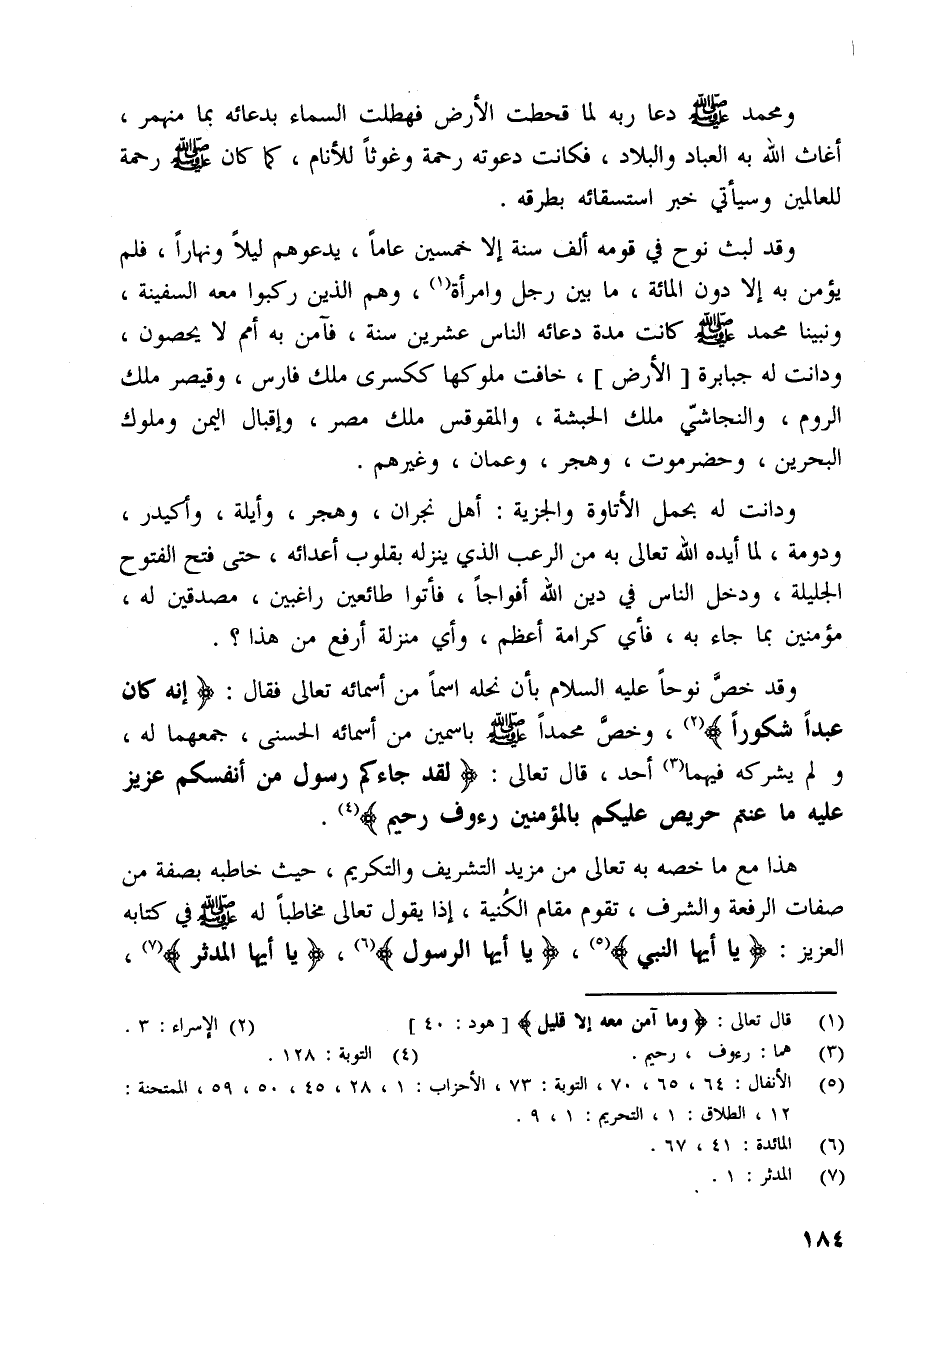 ومحمد ﷺ دعا ربه لما قحطت الأرض فهطلت السماء بدعائه بما منهمر ،
أغاث الله به العباد والبلاد ، فكانت دعوته رحمة وغوثاً للأنام ، كما كان ﷺ رحمة
للعالمين وسيأتي خبر استسقائه بطرقه .
وقد لبث نوح في قومه ألف سنة إلا خمسين عاماً ، يدعوهم ليلاً ونهاراً ، فلم
يؤمن به إلا دون المائة ، ما بين رجل وامرأة(١) ، وهم الذين ركبوا معه السفينة ،
ونبينا محمد ﷺ كانت مدة دعائه الناس عشرين سنة ، فآمن به أمم لا يحصون ،
ودانت له جبابرة [ الأرض ] ، خافت ملوكها ككسرى ملك فارس ، وقيصر ملك
الروم ، والنجاشيّ ملك الحبشة ، والمقوقس ملك مصر ، وإقبال اليمن وملوك
البحرين ، وحضرموت ، وهجر ، وعمان ، وغيرهم .
ودانت له بحمل الأتاوة والجزية : أهل نجران ، وهجر ، وأيلة ، وأكيدر ،
ودومة ، لما أيده الله تعالى به من الرعب الذي ينزله بقلوب أعدائه ، حتى فتح الفتوح
الجليلة ، ودخل الناس في دين الله أفواجاً ، فأتوا طائعين راغبين ، مصدقين له ،
مؤمنين بما جاء به ، فأي كرامة أعظم ، وأي منزلة أرفع من هذا ؟ .
وقد خصَّ نوحاً عليه السلام بأن نحله اسماً من أسمائه تعالى فقال : ﴿ إنه كان
عبداً شكوراً ﴾(٢) ، وخصَّ محمداً ﷺ باسمين من أسمائه الحسنى ، جمعهما له ،
و لم يشركه فيهما(٣) أحد ، قال تعالى : ﴿ لقد جاءكم رسول من أنفسكم عزيز
عليه ما عنتم حريص عليكم بالمؤمنين رءوف رحيم ﴾(٤) .
هذا مع ما خصه به تعالى من مزيد التشريف والتكريم ، حيث خاطبه بصفة من
صفات الرفعة والشرف ، تقوم مقام الكُنية ، إذا يقول تعالى مخاطباً له ﷺ في كتابه
العزيز : ﴿ يا أيها النبي ﴾(٥) ، ﴿ يا أيها الرسول ﴾(٦) ، ﴿ يا أيها المدثر ﴾(٧) ،
(١) قال تعالى : ﴿ وما آمن معه إلا قليل ﴾ [ هود : ٤٠ ] (٢) الإسراء : ٣ .
(٣) هما : رءوف ، رحيم . (٤) التوبة : ١٢٨ .
(٥) الأنفال : ٦٤ ، ٦٥ ، ٧٠ ، التوبة : ٧٣ ، الأحزاب : ١ ، ٢٨ ، ٤٥ ، ٥٠ ، ٥٩ ، الممتحنة :
١٢ ، الطلاق : ١ ، التحريم : ١ ، ٩ .
(٦) المائدة : ٤١ ، ٦٧ .
(٧) المدثر : ١ .
١٨٤